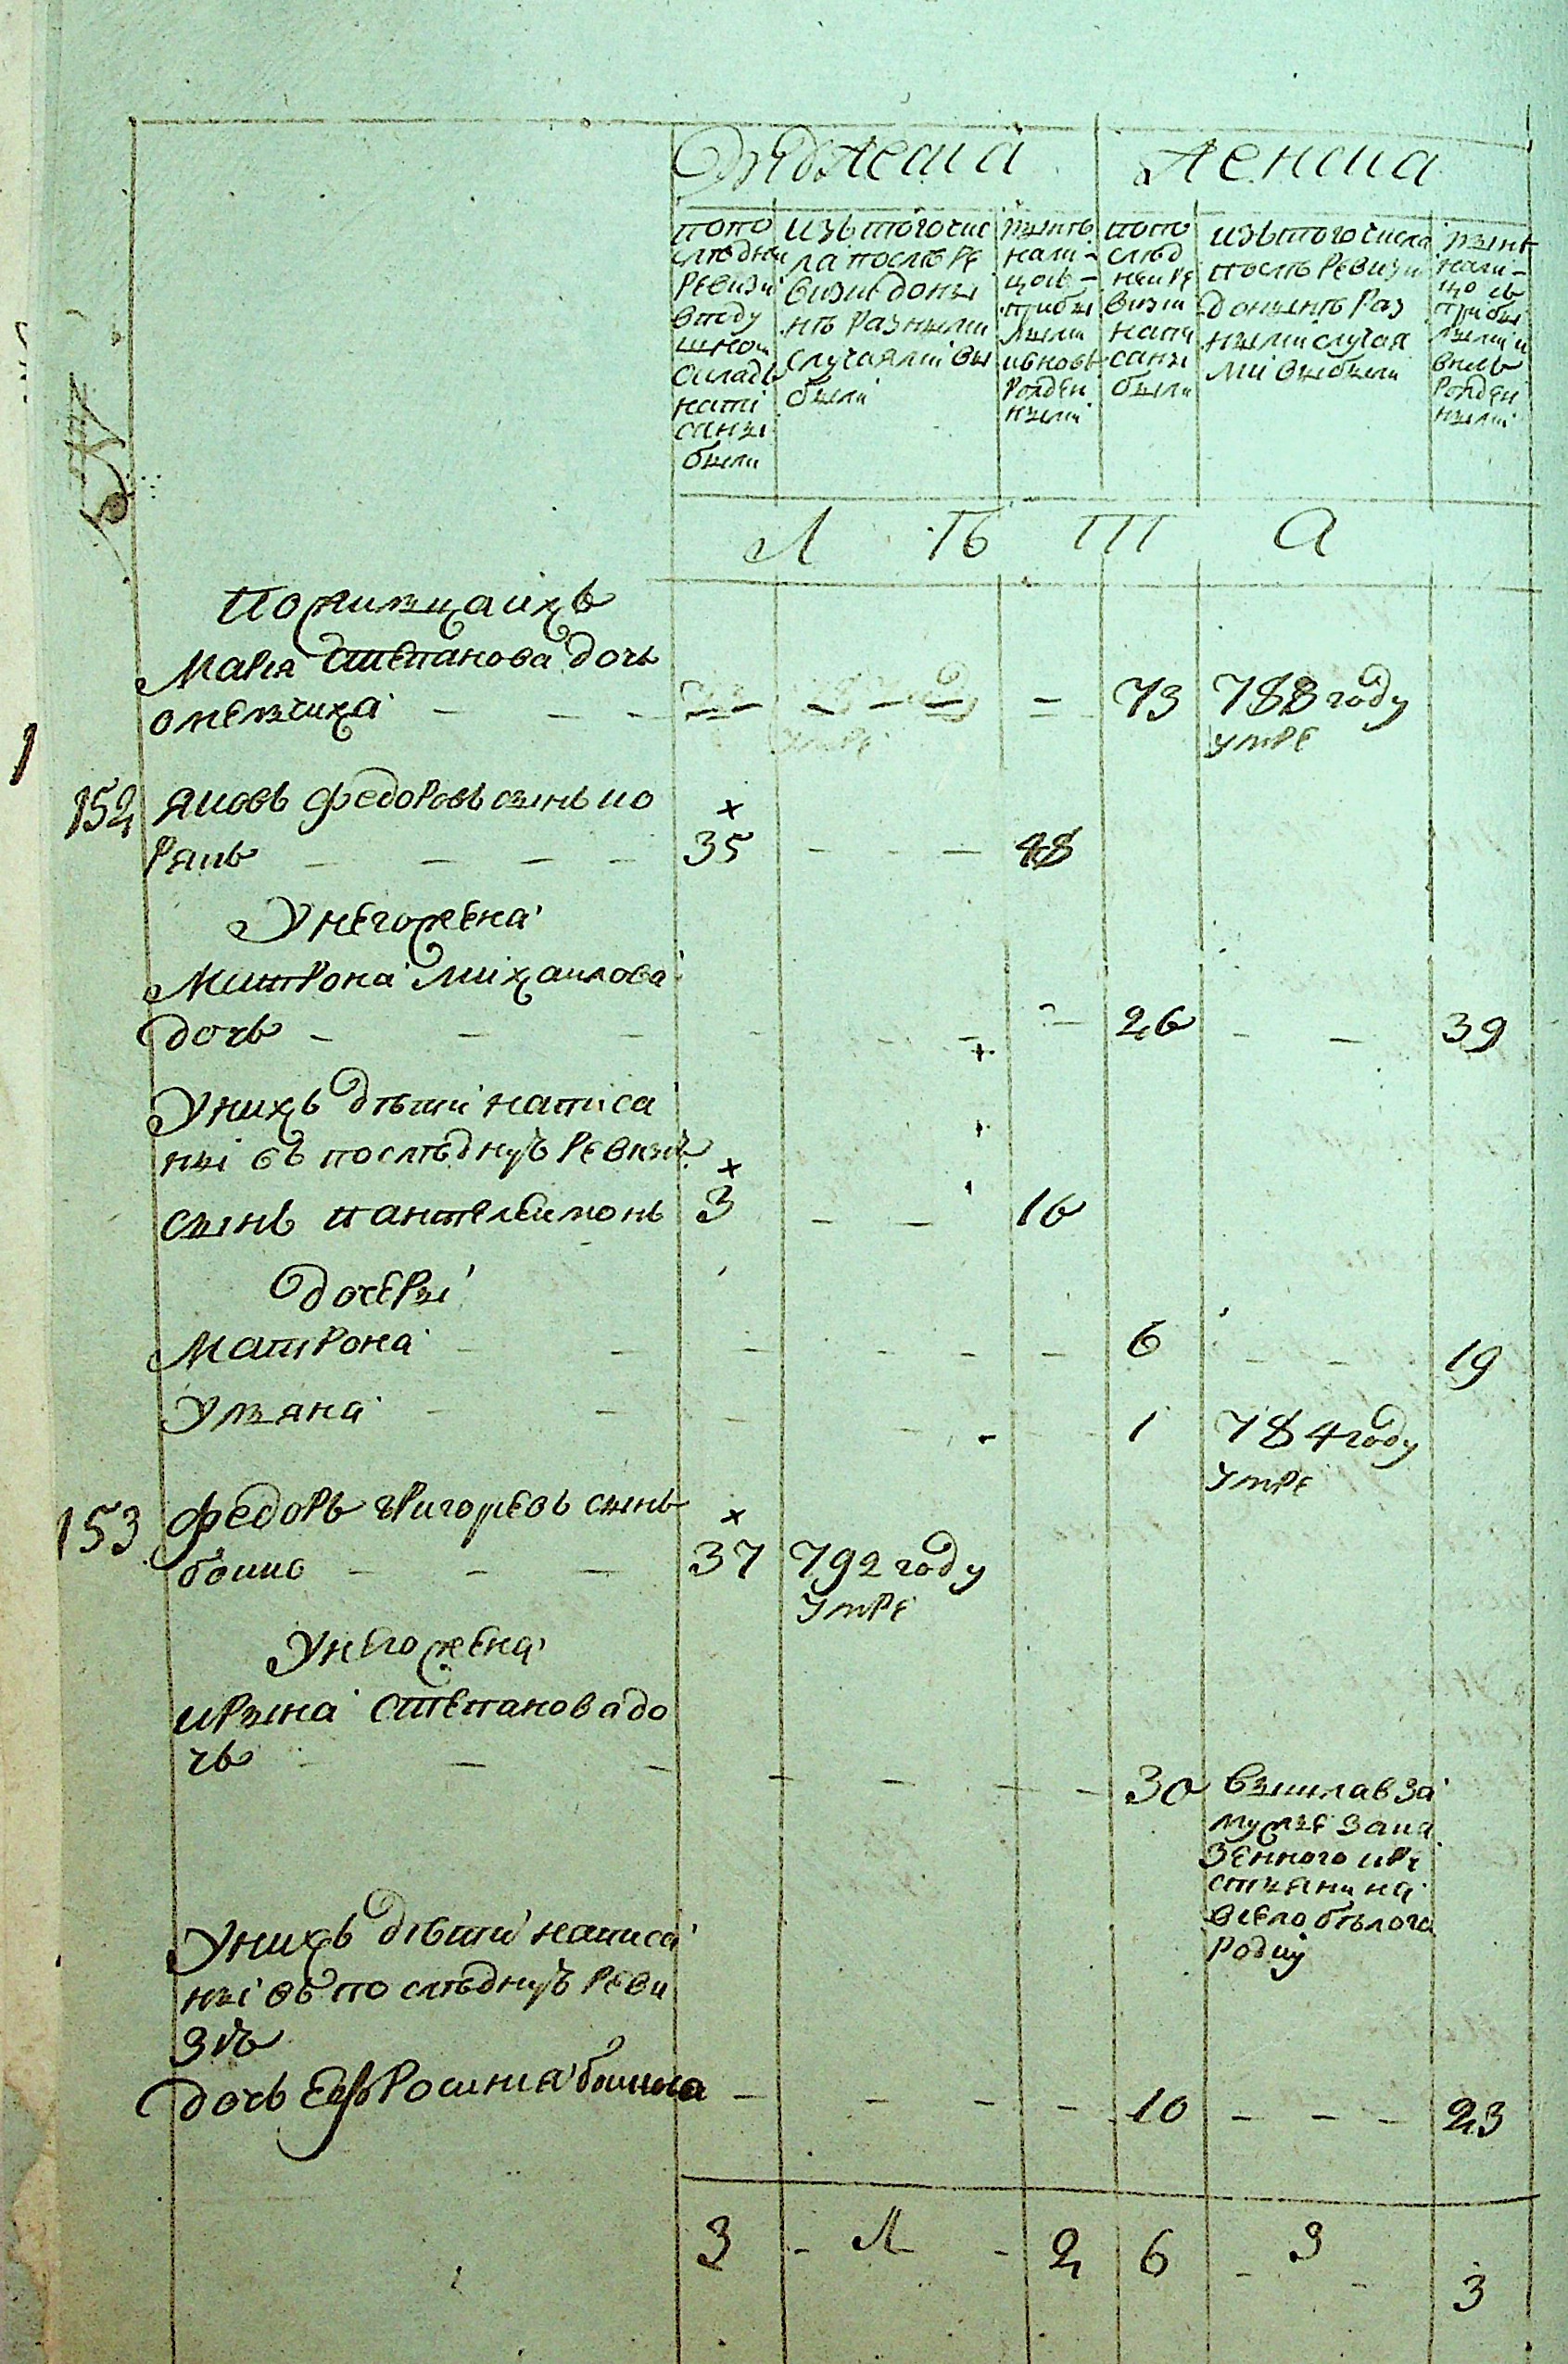 Мужеска Женска
попо
следни
ревизи
вподу
шном
окладе
напи
саны
были
изь тогочис
ла после ре
визии доны
не разными
случаями вы
были
ныне
нали-
цов-
прибы
лыми
ивновь
рожден
ными
попо
след
ней ре
визии
напи
саны
были
изьтого числа
после ревизи
доныне раз
ными случая
ми выбыли
ныне
нали-
цо с
прибы
лыми и
вновь
рожден
ными
Л Ѣ Т А
Поживщаихъ
Мария Степанова дочь
омельчиха - - - - - - = 73 788 году
умре
152 Яковъ Федоровъ сынь ко
рякь - - - - 35 - - - 48
Унего жена
Митрона Михаилова
дочь - - - - 26 - - 39
Унихъ дѣти написа
ни въ последнуъ ревизи
сынь Пантелеимонь 3 - - 16
дочери
Матрона - - - - - - 6 - - 19
Ульяна - - - - - 1 784 году
умре
153 Федоръ Григоревъ сынь
бошко - - - 37 792 году
умре
Унего жена
Ирина Степанова до
чь - - - - - - - 30 вышла вза
мужье зака
зенного кре
стьянина
всело бѣлога
родку
Унихъ дѣти написа
ни въ последнуъ реви
зѣ
дочь Евфросиния бошкова - - - - 10 - - - 23
3 - Л - 2 6 - 3 - 3